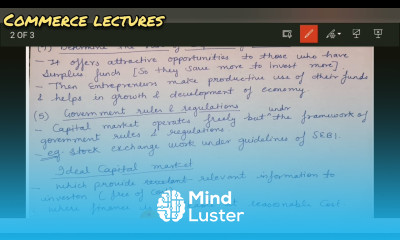 COMMERCE LECTURES
2 OF 3
- It offers attractive opportunities to those who have
surplus funds [So they save more to invest more]
- Then Entrepreneurs make productive use of their funds
& helps in growth & development of economy.
(5) Government rules & regulations
- Capital market operates freely but under the framework of
government rules & regulations
- eg. Stock exchange work under guidelines of SEBI.
Ideal Capital market
- which provide relevant information to
investor (free of
- where finance reasonable Cost
Mind
Luster